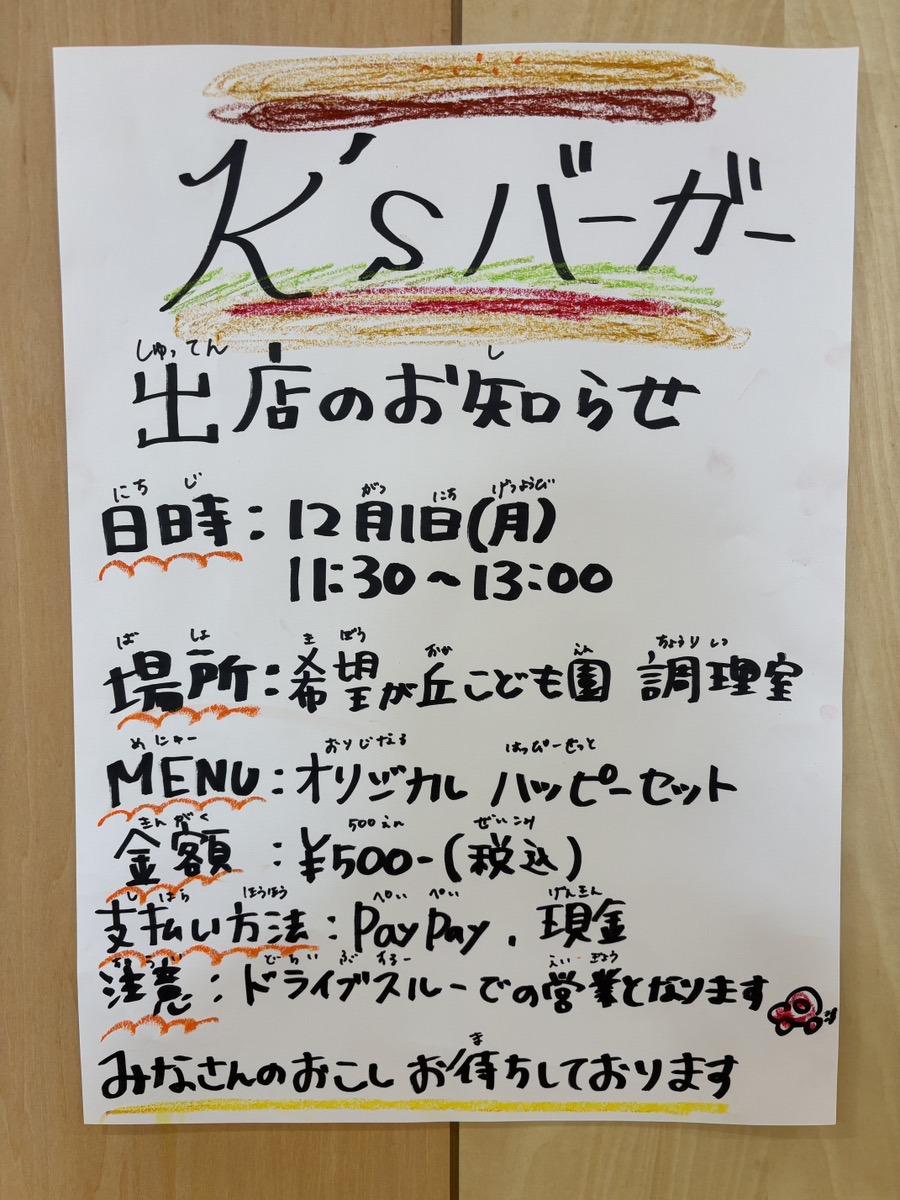 K'sバーガー
しゅってん し
出店のお知らせ
にち じ がつ にち げつようび
日時：12月1日(月)
11:30～13:00
ば しょ き ぼう おか えん ちょうりしつ
場所：希望が丘こども園 調理室
めにゅー おりじなる はっぴーせっと
MENU：オリジナル ハッピーセット
きんがく 500えん ぜいこみ
金額：¥500-(税込)
し はら ほうほう ぺい ぺい げんきん
支払い方法：PayPay、現金
ちゅうい どらいぶ するー えい ぎょう
注意：ドライブスルーでの営業となります
ま
みなさんのおこし お待ちしております